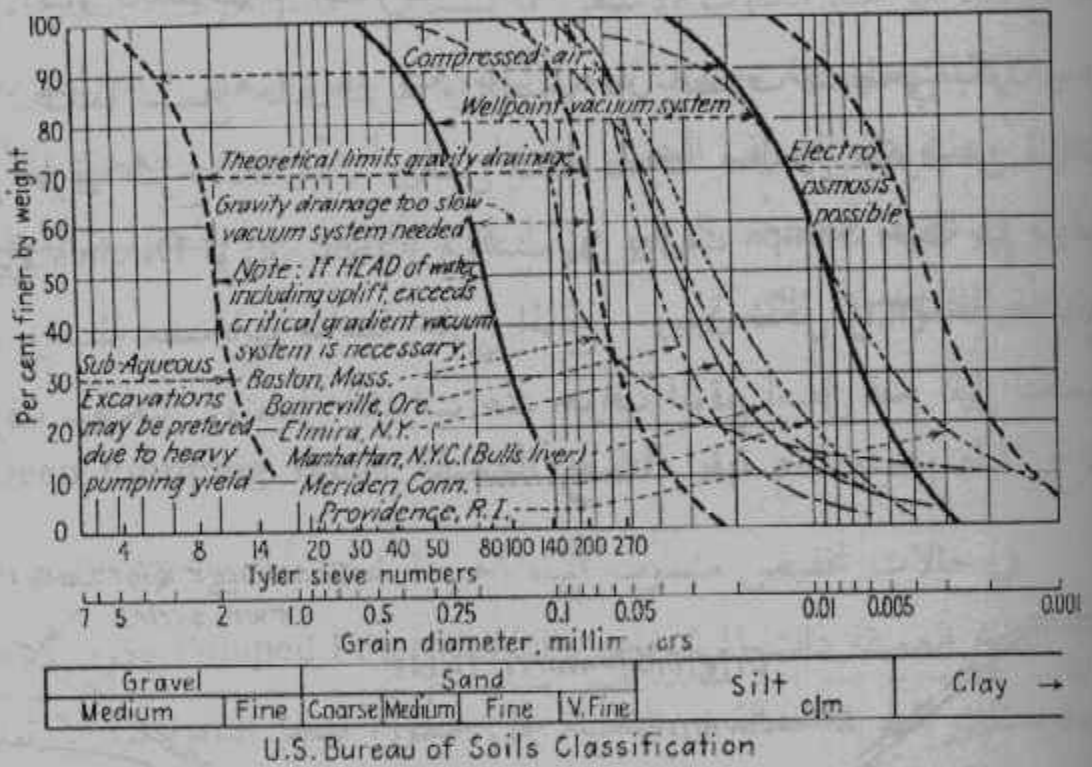 Per cent finer by weight
100
90
80
70
60
50
40
30
20
10
0
Compressed air
Wellpoint vacuum system
Theoretical limits gravity drainage
Electro
osmosis
possible
Gravity drainage too slow
vacuum system needed
Note: If HEAD of water
including uplift, exceeds
critical gradient vacuum
system is necessary,
Sub-Aqueous
Excavations
may be prefered
due to heavy
pumping yield
Boston, Mass.
Bonneville, Ore.
Elmira, N.Y.
Manhattan, N.Y.C. (Bulls liver)
Meriden, Conn.
Providence, R.I.
4 8 14 20 30 40 50 80 100 140 200 270
Tyler sieve numbers
7 5 2 1.0 0.5 0.25 0.1 0.05 0.01 0.005 0.001
Grain diameter, millim ers
Gravel Sand Silt Clay →
Medium Fine Coarse Medium Fine V. Fine
U.S. Bureau of Soils Classification